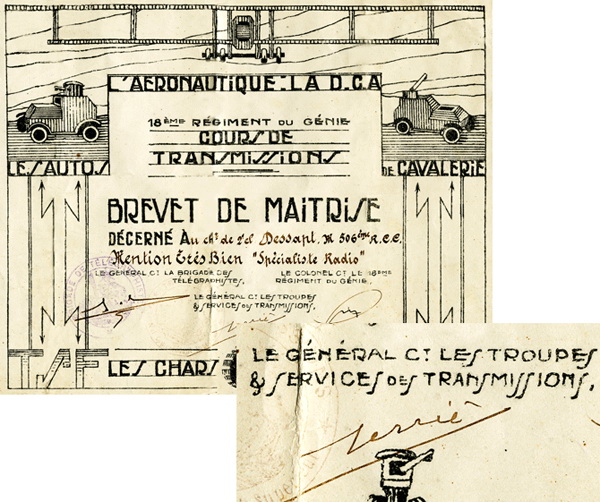 L'AÉRONAUTIQUE: LA D.C.A
18ÈME RÉGIMENT DU GÉNIE
COURS DE
TRANSMISSIONS
LES AUTOS
DE CAVALERIE
BREVET DE MAITRISE
DÉCERNÉ Au chf de 2el M 506ème R.C.C.
Mention Très Bien "Spécialiste Radio"
LE GÉNÉRAL Ct LA BRIGADE DES
TÉLÉGRAPHISTES,
LE COLONEL Ct LE 18ÈME
RÉGIMENT DU GÉNIE.
LE GÉNÉRAL Ct LES TROUPES
& SERVICES DES TRANSMISSIONS,
TSF
LES CHARS
LE GÉNÉRAL Ct LES TROUPES
& SERVICES DES TRANSMISSIONS,
Ferrié